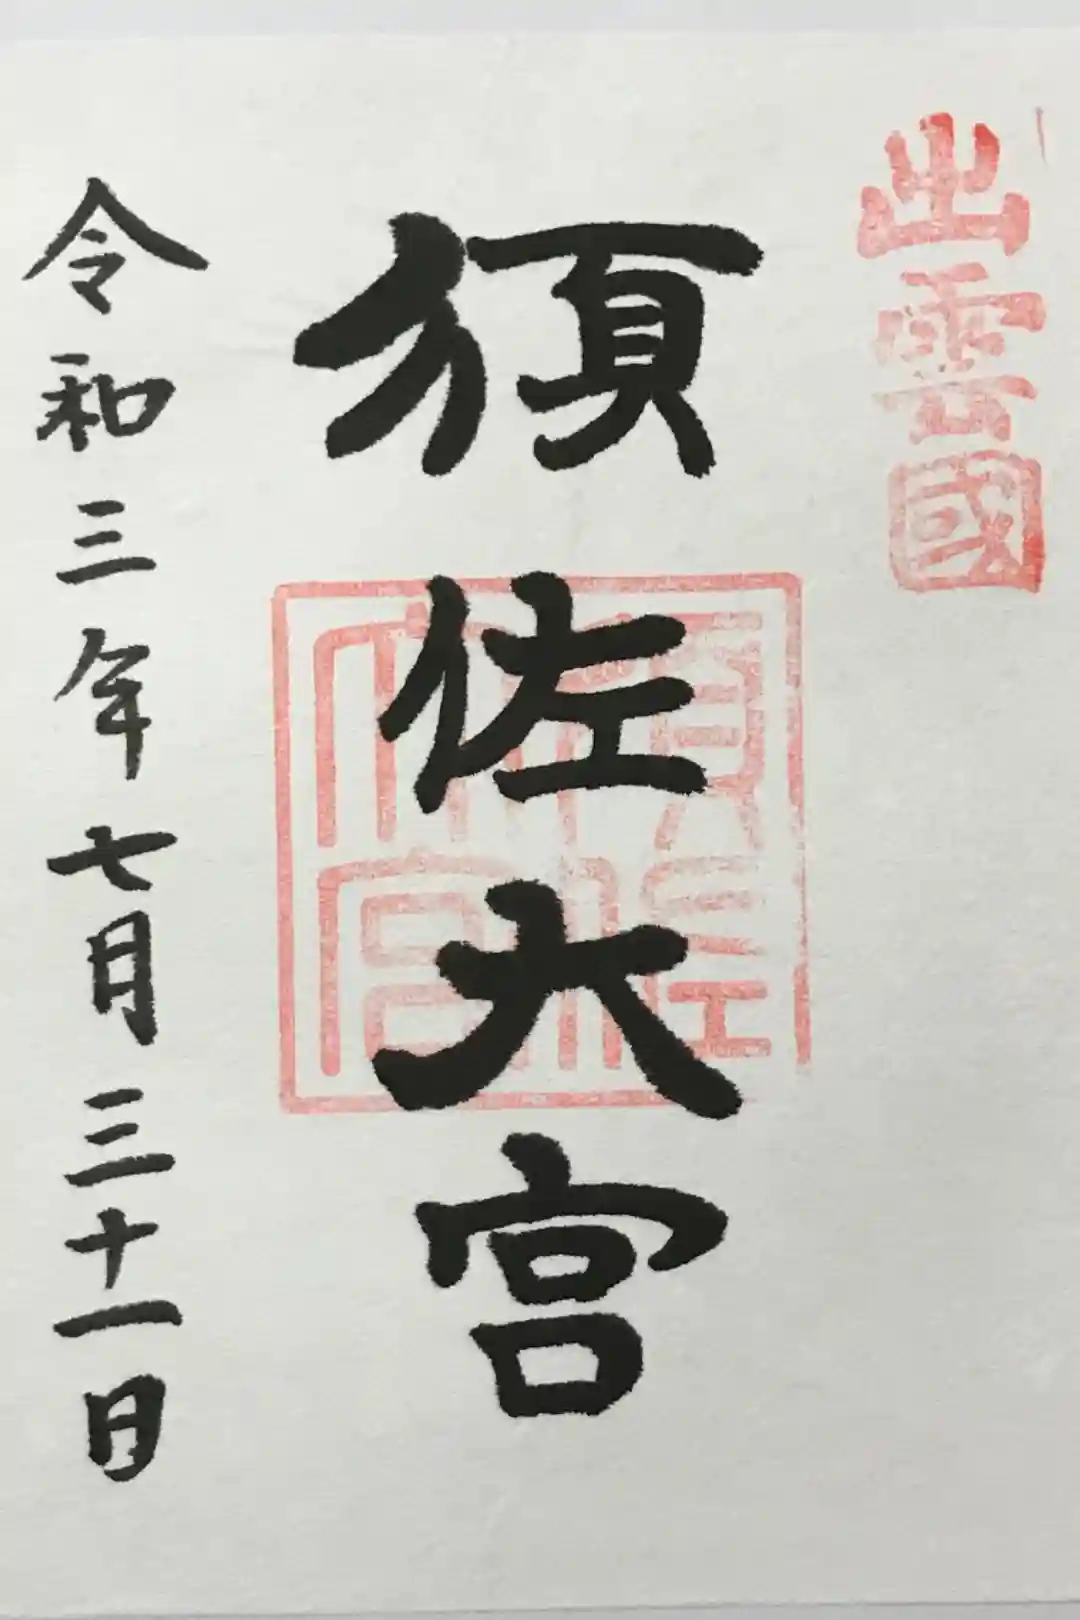 出雲國
須佐大宮
須佐大宮
令和三年七月三十一日